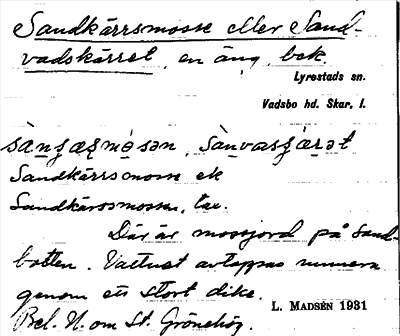 Sandkärrsmosse eller Sand-
vadskärret, en äng, bek.
Lyrestads sn.
Vadsbo hd. Skar. l.
Sandkärrsmosse ek
Sandkärrsmossen, tax.
Där är mossjord på sand-
botten. Vattnet avtappas numera
genom ett stort dike.
L. MADSÉN 1931
Bel. N. om St. Grönehög.